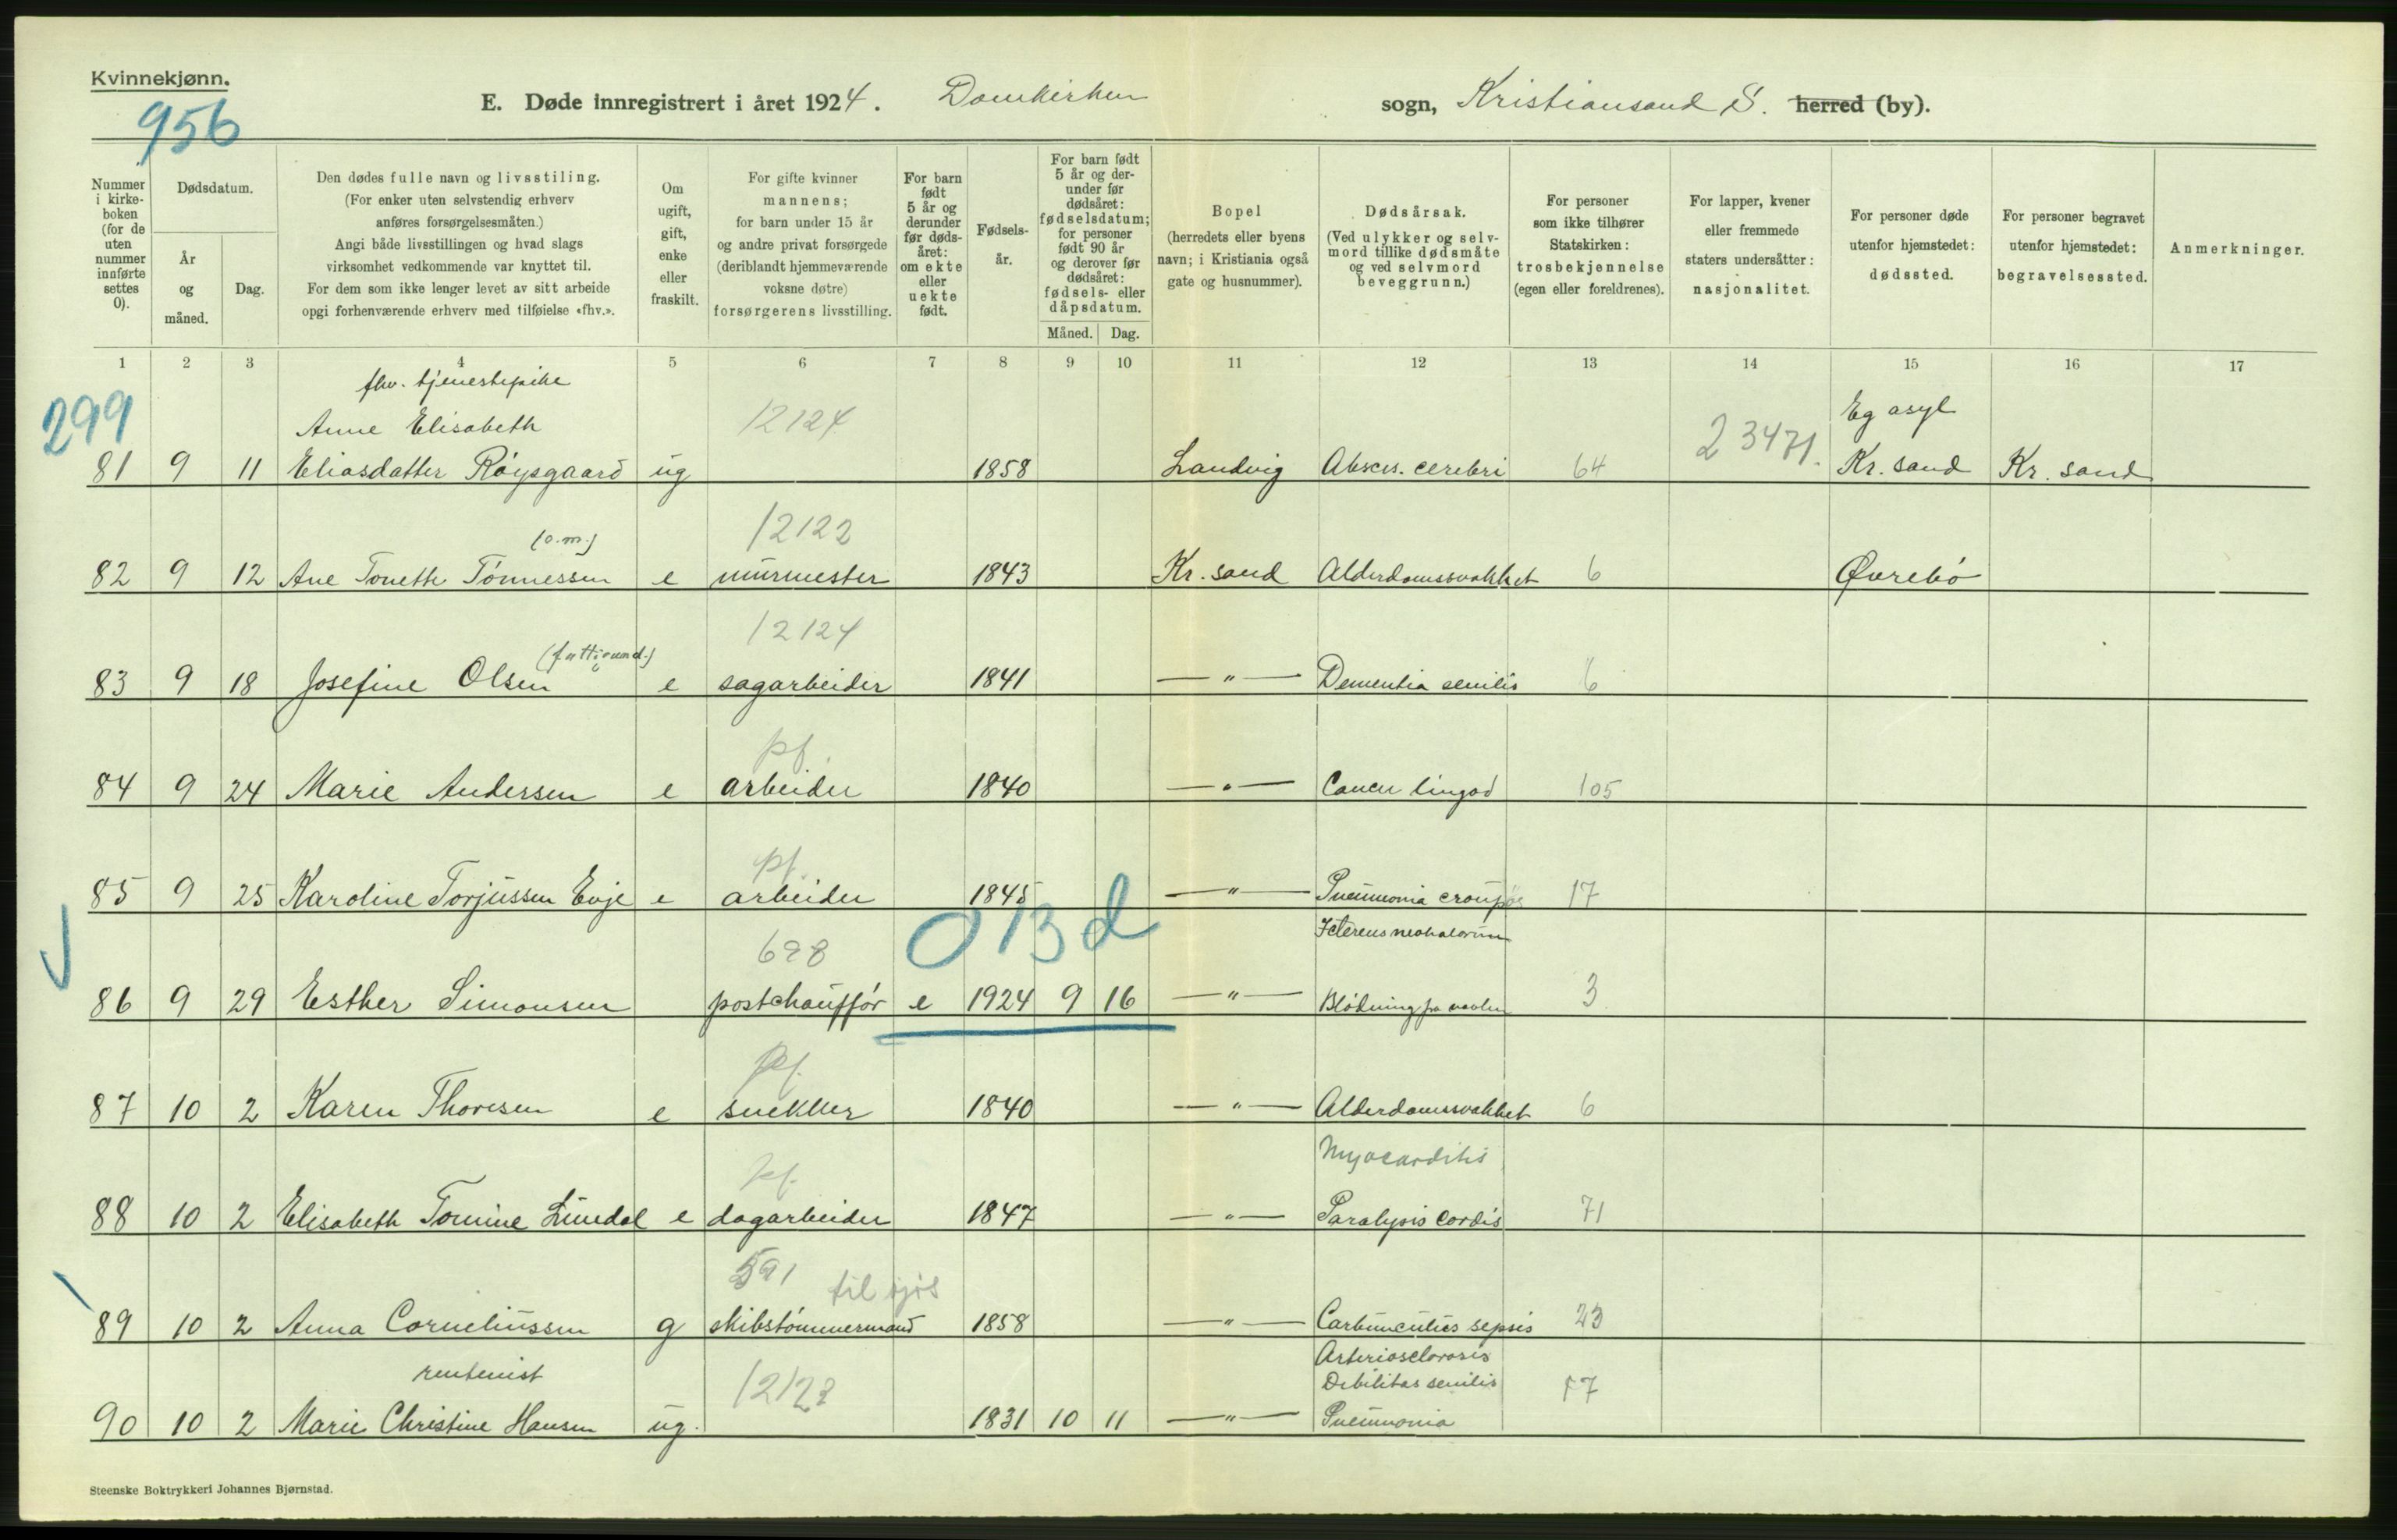 Kvinnekjønn.
956
E. Døde innregistrert i året 1924. Domkirken sogn, Kristiansand S. herred (by).
Nummer i kirke- boken (for de uten nummer innførte settes 0).
Dødsdatum.
År og måned.
Dag.
Den dødes fulle navn og livsstiling.
(For enker uten selvstendig erhverv
anføres forsørgelsesmåten.)
Angi både livsstillingen og hvad slags
virksomhet vedkommende var knyttet til.
For dem som ikke lenger levet av sitt arbeide
opgi forhenværende erhverv med tilføielse «fhv.».
Om ugift, gift, enke eller fraskilt.
For gifte kvinner
mannens;
for barn under 15 år
og andre privat forsørgede
(deriblandt hjemmeværende
voksne døtre)
forsørgerens livsstilling.
For barn født 5 år og derunder før døds- året: om ekte eller uekte født.
Fødsels- år.
For barn født 5 år og der- under før dødsåret: fødselsdatum; for personer født 90 år og derover før dødsåret: fødsels- eller dåpsdatum.
Måned. Dag.
Bopel
(herredets eller byens
navn; i Kristiania også
gate og husnummer).
Dødsårsak.
(Ved ulykker og selv-
mord tillike dødsmåte
og ved selvmord
beveggrunn.)
For personer
som ikke tilhører
Statskirken:
trosbekjennelse
(egen eller foreldrenes).
For lapper, kvener
eller fremmede
staters undersåtter:
nasjonalitet.
For personer døde
utenfor hjemstedet:
dødssted.
For personer begravet
utenfor hjemstedet:
begravelsessted.
Anmerkninger.
1 2 3 4 5 6 7 8 9 10 11 12 13 14 15 16 17
fhv. tjenestepike
299 Anne Elisabeth 12124 23471. Eg asyl
81 9 11 Eliasdatter Röysgaard ug 1858 Landvig Absces. cerebri 64 Kr. sand Kr. sand
(o.m.) 12122
82 9 12 Ane Tonette Tönnessen e murmester 1843 Kr. sand Alderdomssvakhet 6 Øvrebö
(fattigund.) 12124
83 9 18 Josefine Olsen e sagarbeider 1841 — " — Dementia senilis 6
pf.
84 9 24 Marie Andersen e arbeider 1840 — " — Cancer 105
pf.
85 9 25 Karoline Torjussen Evje e arbeider 1845 — " — Pneumonia croupös 17
698 013d Icterus neonatorum
86 9 29 Esther Simonsen postchaufför e 1924 9 16 — " — Blödning fra navlen 3
pf.
87 10 2 Karen Thoresen e snekker 1840 — " — Alderdomssvakhet 6
pf. Myocarditis
88 10 2 Elisabeth Tomine Lundal e dagarbeider 1847 — " — Paralysis cordis 71
591 til sjøs
89 10 2 Anna Corneliussen g skibstömmermand 1858 — " — Carbunculus sepsis 23
rentenist 12122 Arteriosclerosis
Debilitas senilis
90 10 2 Marie Christine Hansen ug. 1831 10 11 — " — Pneumonia 17
Steenske Boktrykkeri Johannes Bjørnstad.